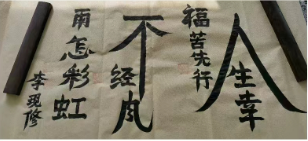 人生幸
福苦先行
不经风
雨怎彩虹
李现修